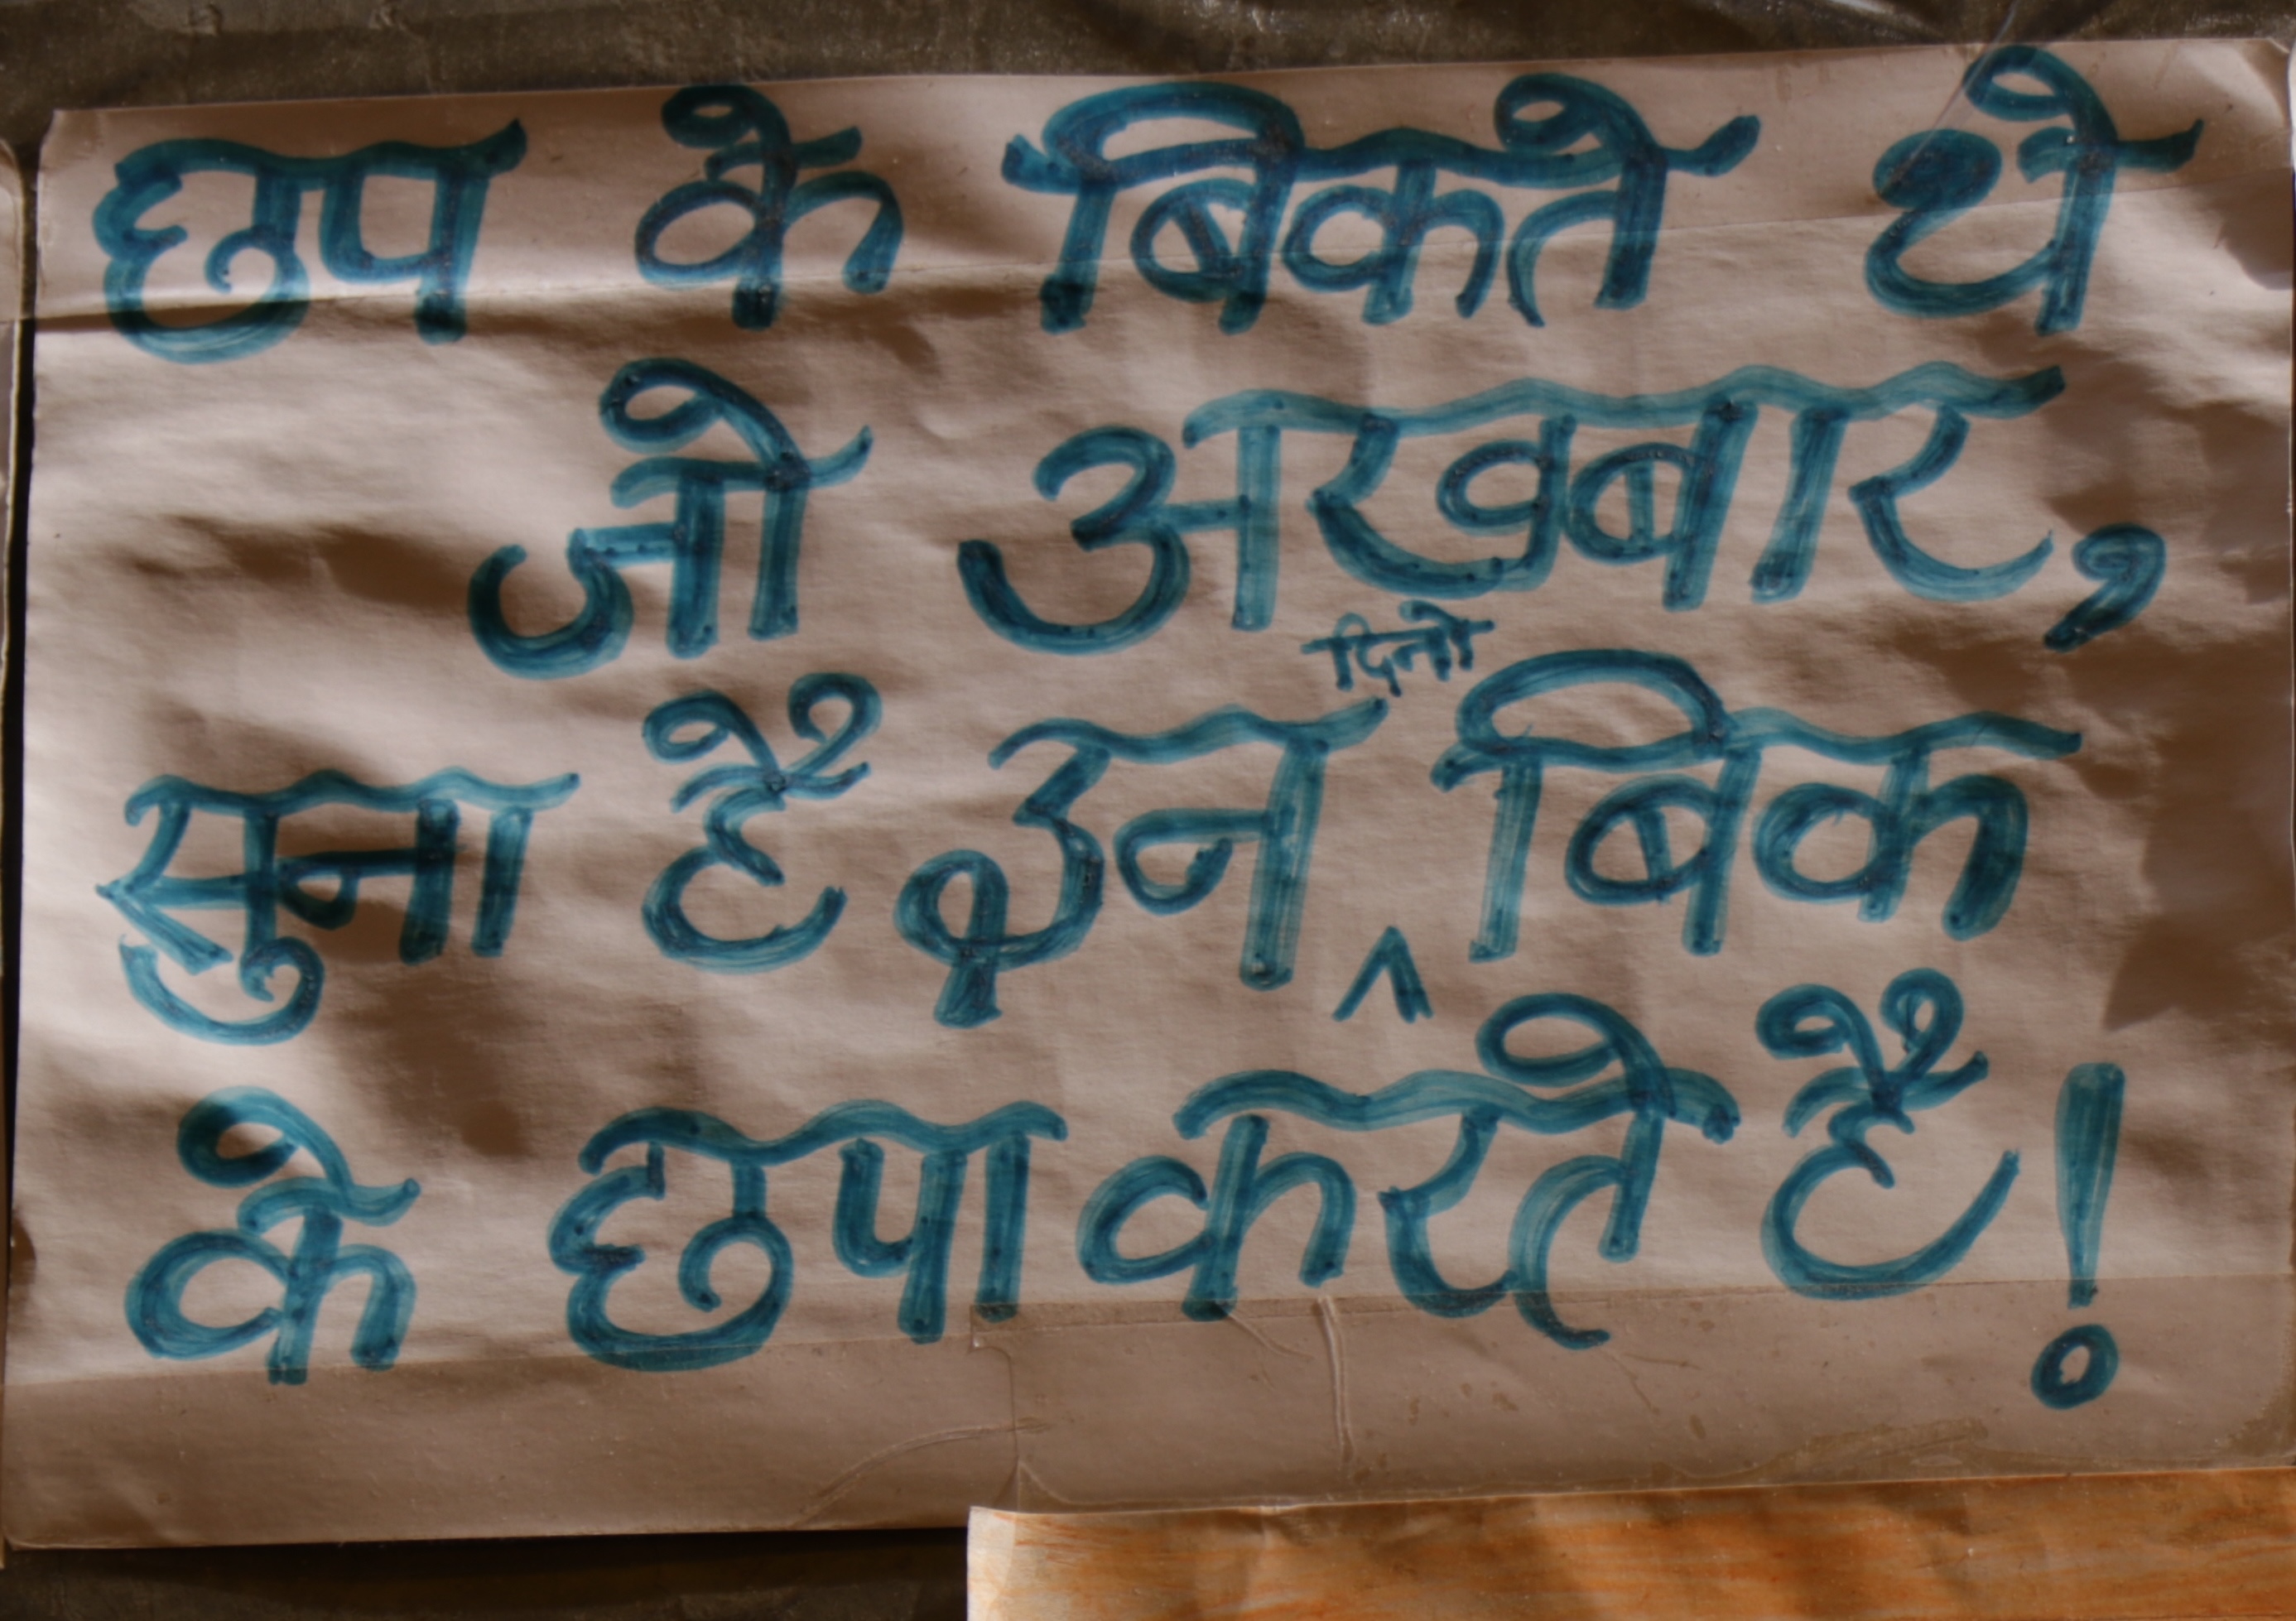 छप के बिकते थे
जो अखबार,
सुना हैं इन ^ दिनो बिक
के छपा करते हैं!